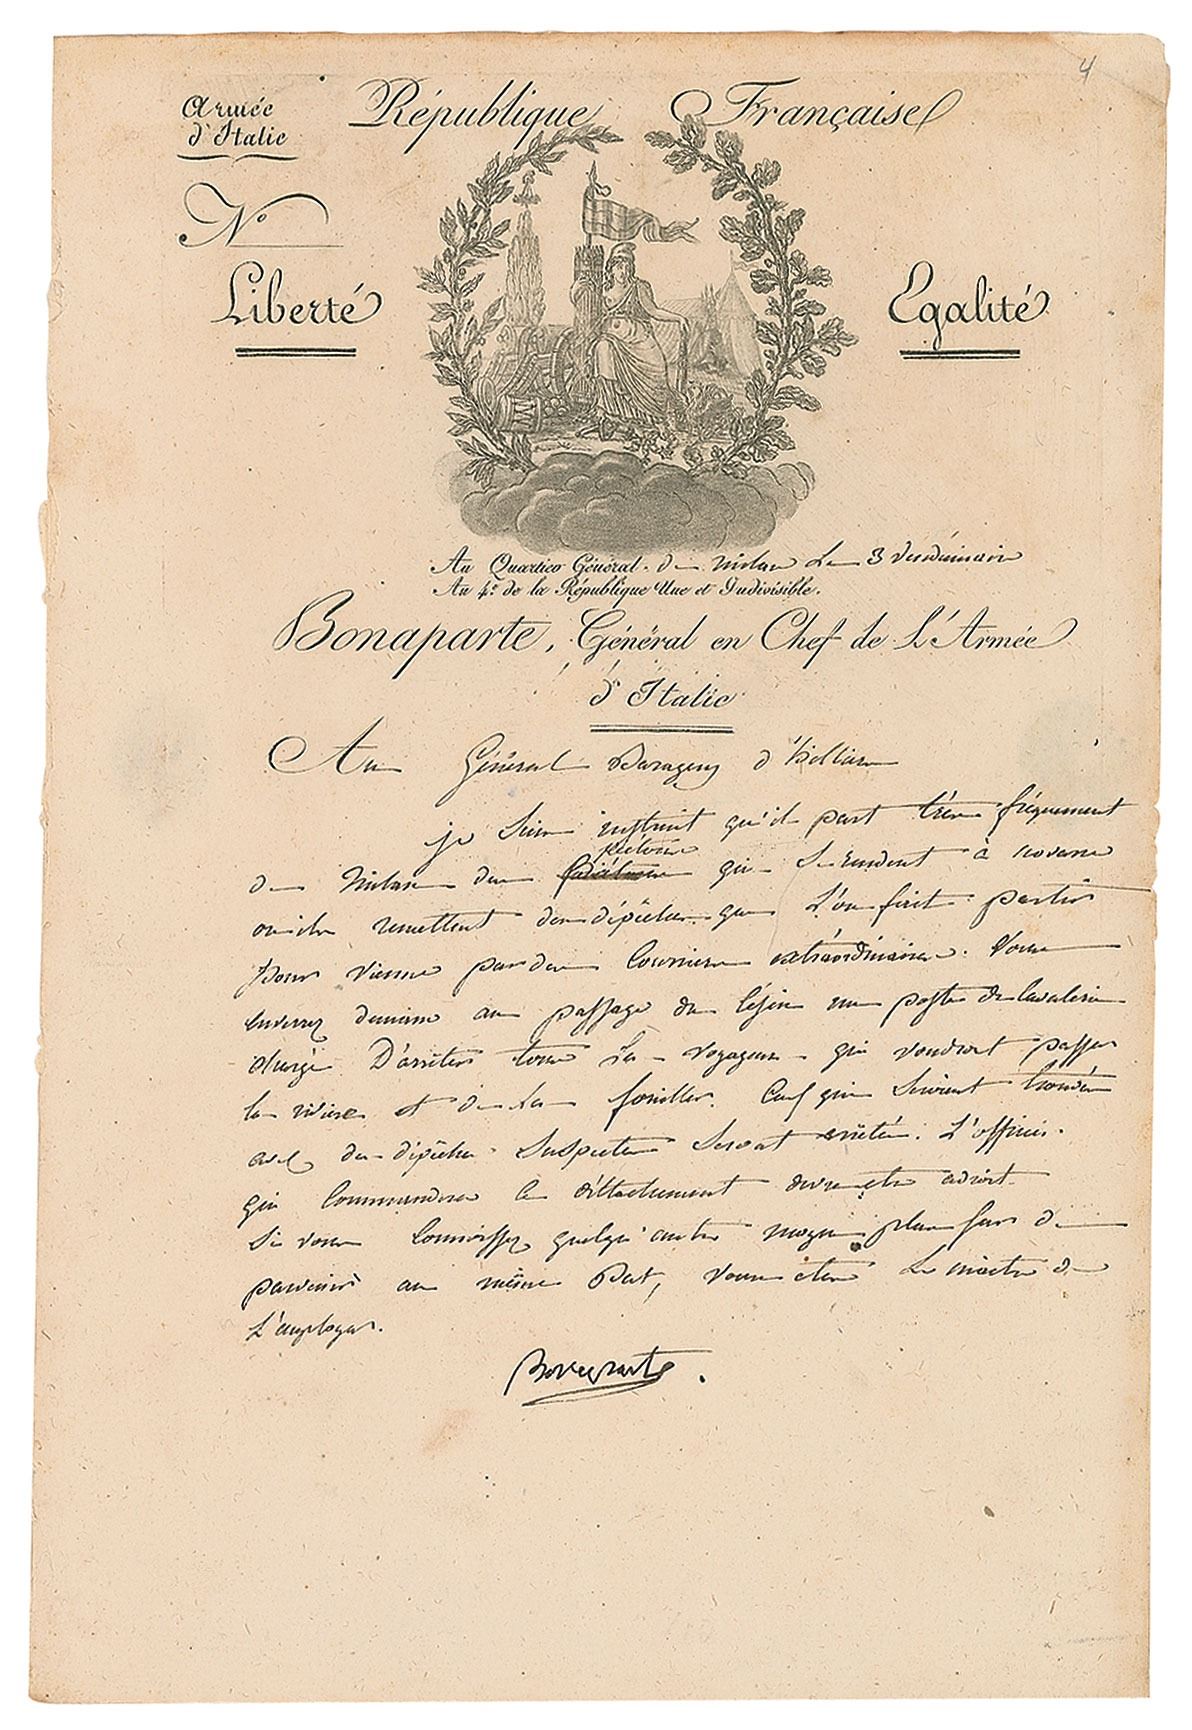 4
Armée
d'Italie
République Française
N°
Liberté
Egalité
Au Quartier Général. de Milan Le 3 Vendémiaire
An 4e. de la République Une et Indivisible.
Bonaparte, Général en Chef de L'Armée
d'Italie
Au Général Baraguey d'hilliers
je suis instruit qu'il part très fréquement
piétons
de Milan des qui se rendent à novarre
ou ils remettent des dépêches que l'on fait partir
pour vienne par des Courriers extraordinaires. Vous
enverrez demain au passage du tésin un poste de Cavalerie
chargé D'arrêter tous les voyageurs qui voudront passer
la rivière et de les fouiller. Ceux qui seroient trouvés
avec des dépêches suspectes seront arrêtés. L'officier
qui Commandera le détachement devra être adroit
Si vous Connoissez quelqu'autre moyen plus sur de
parvenir au même But, vous êtes le maître de
L'employer.
Bonaparte